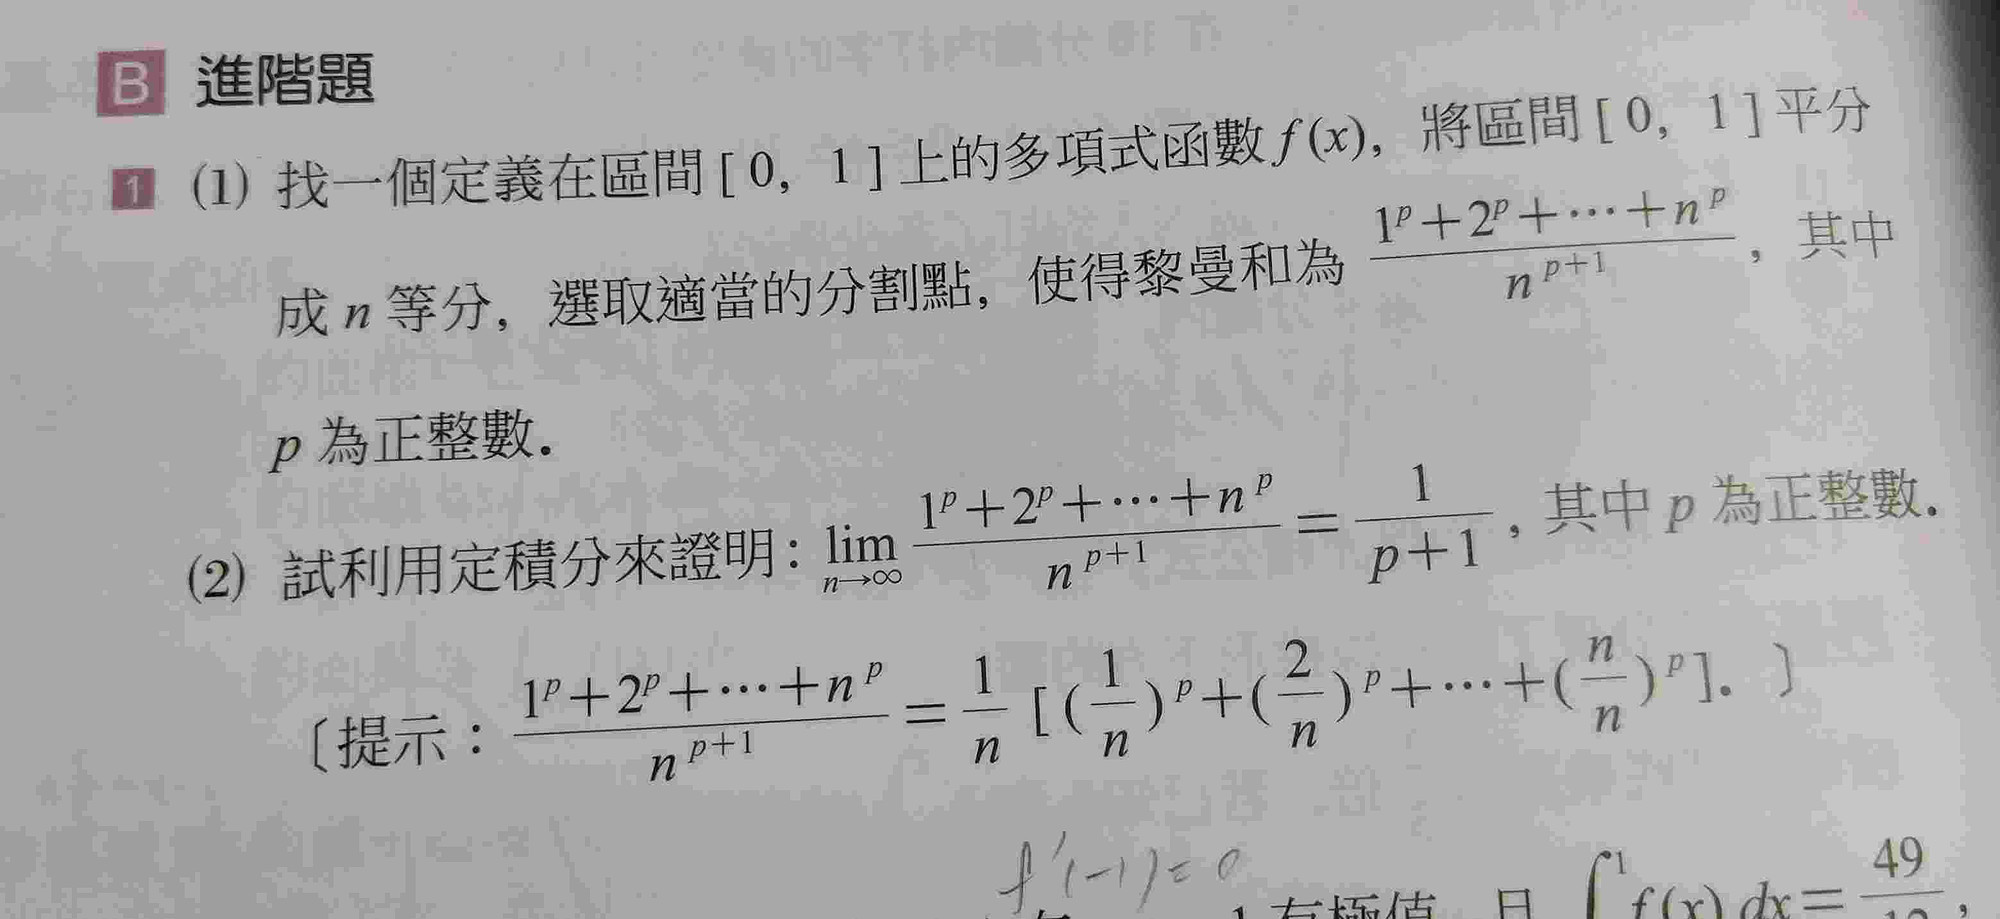 B 進階題
1 (1) 找一個定義在區間 [ 0, 1 ] 上的多項式函數 f (x), 將區間 [ 0, 1 ] 平分
成 n 等分, 選取適當的分割點, 使得黎曼和為 \frac{1^p+2^p+⋯+n^p}{n^{p+1}}, 其中
p 為正整數.
(2) 試利用定積分來證明: \lim_{n→∞} \frac{1^p+2^p+⋯+n^p}{n^{p+1}} = \frac{1}{p+1}, 其中 p 為正整數.
〔提示: \frac{1^p+2^p+⋯+n^p}{n^{p+1}} = \frac{1}{n} [ (\frac{1}{n})^p+(\frac{2}{n})^p+⋯+(\frac{n}{n})^p]. 〕
f'(-1)=0
1 有極值, 且 ∫^1 f(x) dx = 49